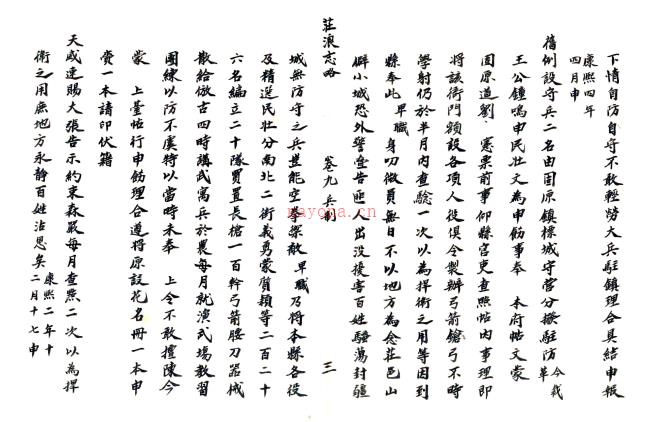 下情自防自守不敢輕勞大兵駐鎮理合具結申報
康熙四年
四月申
舊例設守兵二名由固原鎮標城守營分撥駐防 今裁
革
王公鍾鳴申民壯文為申飭事奉 本府帖文蒙
固原道劉 憲票前事仰縣官吏查照帖內事理即
將該衙門額設各項人役俱令製辦弓箭鎗弓不時
學射仍於半月內查驗一次以為捍衛之用等因到
縣奉此卑職身叨微員無日不以地方為念莊邑山
僻小城恐外警疊告匪人出没擾害百姓騷蕩封疆
莊浪志略 卷九 兵制 三
城無防守之兵豈能空拳禦敵卑職乃將本縣各役
及精選民壯分南北二街義勇蒙質穎等二百二十
六名編立二十隊買置長槍一百幹弓箭腰刀器械
散給倣古四時講武寓兵於農每月就演武塲教習
團練以防不虞特以當時未奉 上令不敢擅陳今
蒙 上臺帖行申飭理合遵將原設花名冊一本申
賫一本請印伏籍
天威速賜大張告示約束森嚴每月查㸃二次以為捍
衛之用庶地方永靜百姓沾恩矣 康熙二年十
二月十七申
mayoua.com